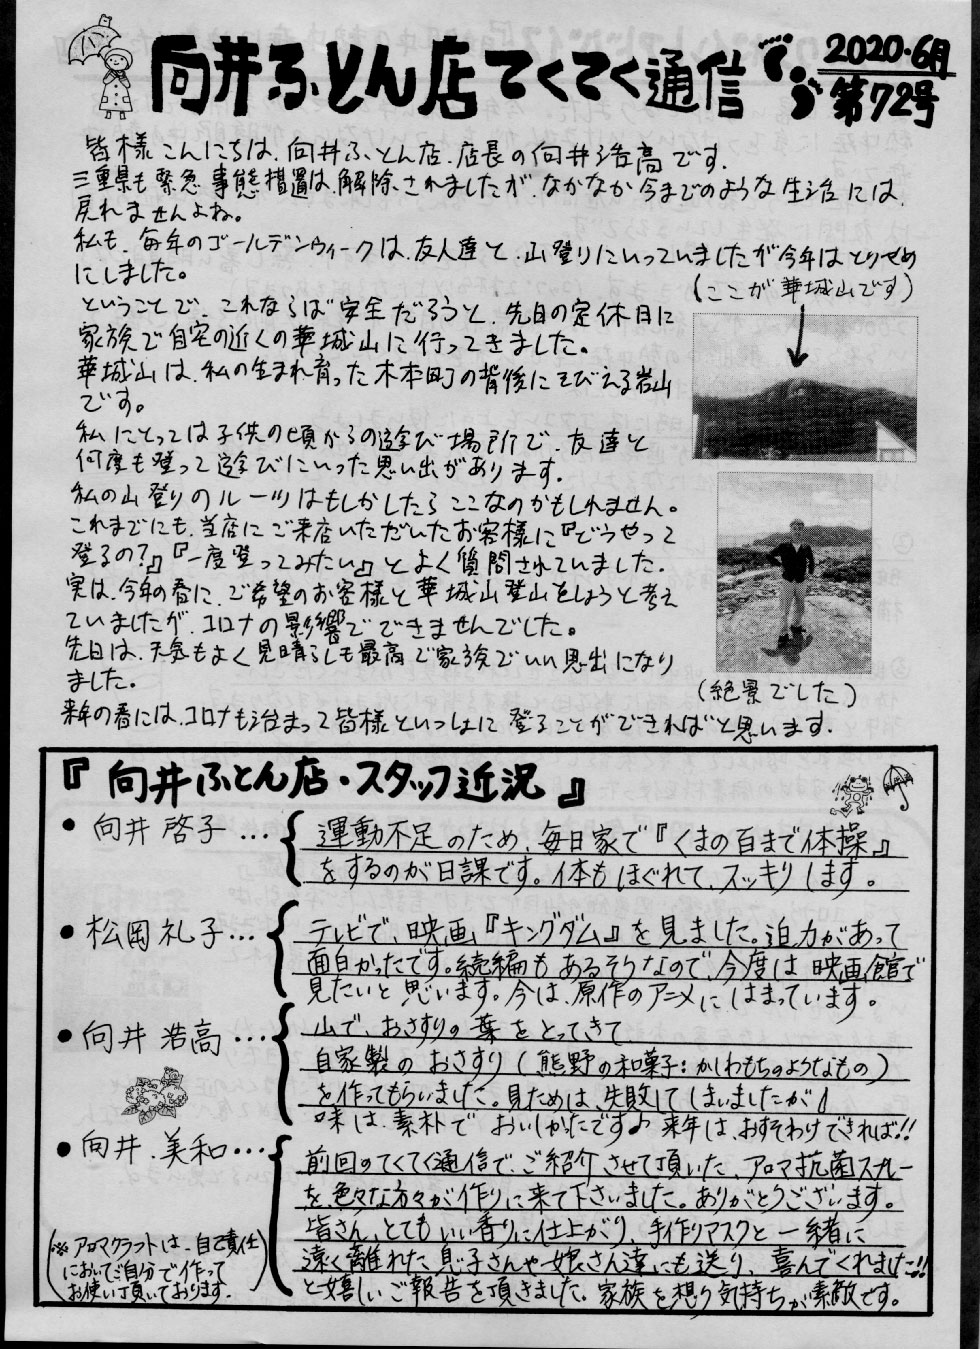 向井ふとん店てくてく通信
2020.6月
第72号
皆様こんにちは、向井ふとん店、店長の向井浩高です。
三重県も緊急事態措置は、解除されましたが、なかなか今までのような生活には、
戻れませんよね。
私も、毎年のゴールデンウィークは、友人達と、山登りにいっていましたが今年はとりやめ
にしました。
(ここが華城山です)
ということで、これならば安全だろうと、先日の定休日に
家族で自宅の近くの華城山に行ってきました。
華城山は、私の生まれ育った木本町の背後にそびえる岩山
です。
私にとっては子供の頃からの遊び場所で、友達と
何度も登って遊びにいった思い出があります。
私の山登りのルーツはもしかしたらここなのかもしれません。
これまでにも、当店にご来店いただいたお客様に『どうやって
登るの?』『一度登ってみたい』とよく質問されていました。
実は、今年の春に、ご希望のお客様と華城山登山をしようと考え
ていましたが、コロナの影響でできませんでした。
先日は、天気もよく見晴らしも最高で家族でいい思出になり
ました。
(絶景でした)
来年の春には、コロナも治まって皆様といっしょに登ることができればと思います。
『向井ふとん店・スタッフ近況』
・向井啓子…
運動不足のため、毎日家で『くまの百まで体操』
をするのが日課です。体もほぐれて、スッキリします。
・松岡礼子…
テレビで、映画『キングダム』を見ました。迫力があって
面白かったです。続編もあるそうなので、今度は映画館で
見たいと思います。今は、原作のアニメにはまっています。
・向井浩高…
山で、おさすりの葉をとってきて
自家製のおさすり(熊野の和菓子:かしわもちのようなもの)
を作ってもらいました。見ためは、失敗してしまいましたが♩
味は、素朴でおいしかたです♪来年は、おすそわけできれば!!
・向井美和…
前回のてくてく通信で、ご紹介させて頂いた、アロマ抗菌スプレー
を、色々な方々が作りに来て下さいました。ありがとうございます。
皆さん、とてもいい香りに仕上がり、手作りマスクと一緒に
遠く離れた息子さんや娘さん達にも送り、喜んでくれました!!
と嬉しいご報告を頂きました。家族を想う気持ちが素敵です。
(※アロマクラフトは、自己責任
においてご自分で作って
お使い頂いております。)